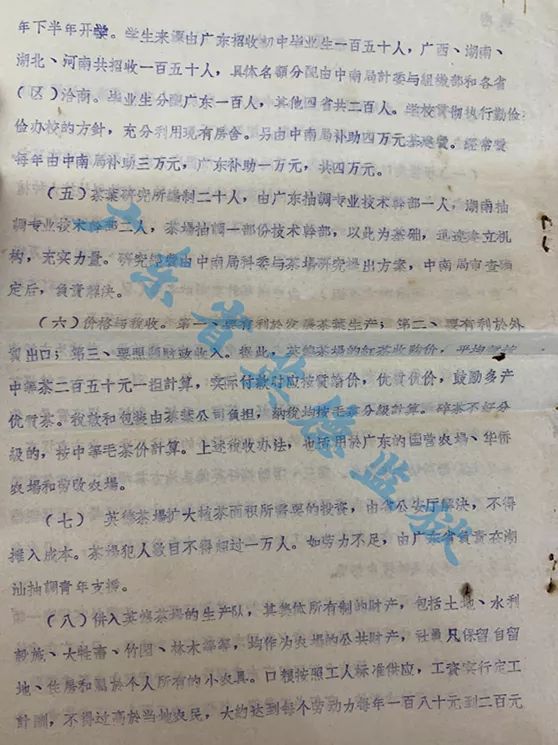 年下半年开学。学生来源由广东招收初中毕业生一百五十人，广西、湖南、
湖北、河南共招收一百五十人，具体名额分配由中南局计委与组织部和各省
（区）洽商。毕业生分配广东一百人，其他四省共二百人。学校贯彻执行勤俭
俭办校的方針，充分利用现有房舍。另由中南局补助四万元基建費。經常費
每年由中南局补助三万元，广东补助一万元，共四万元。
（五）茶葉研究所編制二十人，由广东抽調专业技术幹部一人，湖南抽
調专业技术幹部二人，茶場抽調一部份技术幹部，以此为基础，迅速建立机
构，充实力量。研究經費由中南局科委与茶場研究提出方案，中南局审查确
定后，負責解决。
（六）价格与税收。第一、要有利於发展茶葉生产；第二、要有利於外
貿出口；第三、要照顧財政收入。据此，英德茶場的紅茶收购价，平均
中等茶二百五十元一担計算，实际付款时应按質論价，优質优价，鼓励多产
优質茶。税款和包装由茶葉公司負担，納税均按毛茶分級計算。碎茶不好分
級的，按中等毛茶价計算。上述税收办法，也适用於广东的国营农場、华侨
农場和劳改农場。
（七） 英德茶場扩大植茶面积所需要的投資，由省公安厅解决，不得
摊入成本。茶場犯人数目不得超过一万人。如劳力不足，由广东省負責在潮
汕抽調青年支援。
（八）併入英德茶場的生产队，其集体所有制的財产，包括土地、水利
設施、大牲畜、竹园、林木等等，均作为农場的公共財产，社員只保留自留
地、住房和屬於个人所有的小农具。口粮按照工人标准供应，工資实行定工
計酬，不得过高於当地农民，大約达到每个劳动力每年一百八十元到二百元
广东省英德监狱